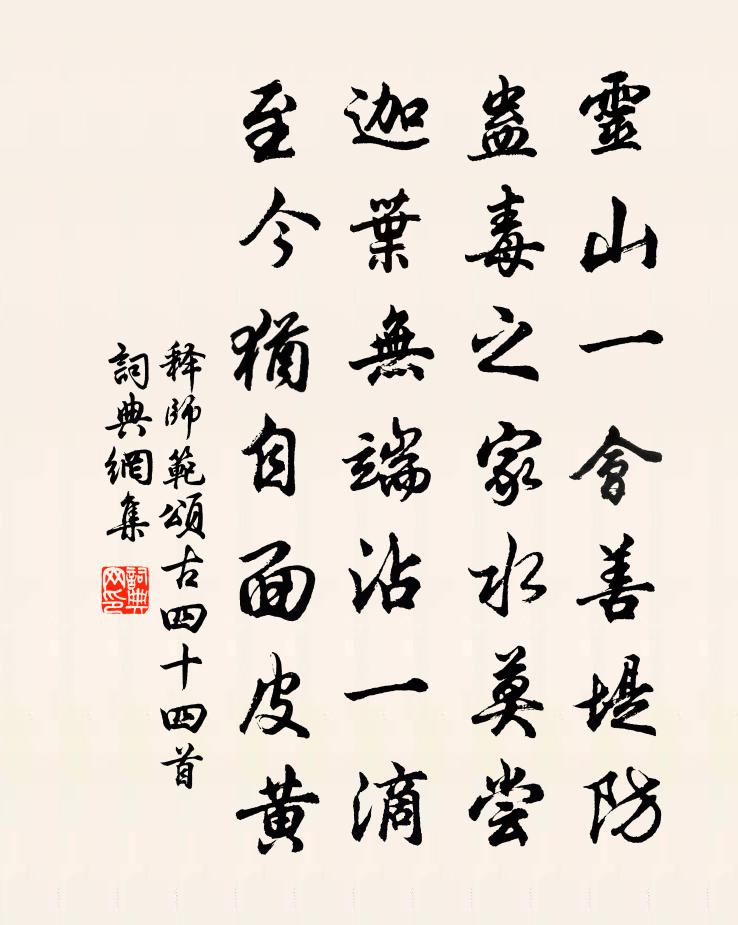 靈山一會善堤防
蠱毒之家水莫嘗
迦葉無端沾一滴
至今猶自面皮黃
释師範頌古四十四首
詞典網集
詞典网印